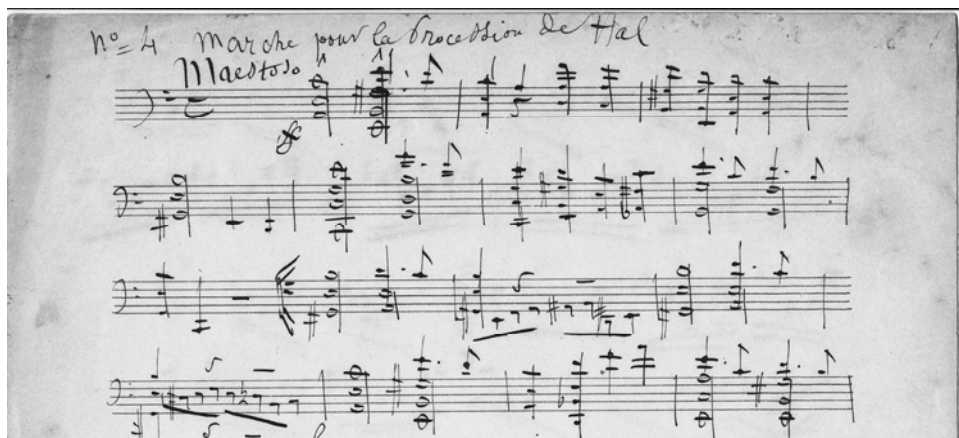 nº= 4 Marche pour la Procession de Hal
Maestoso